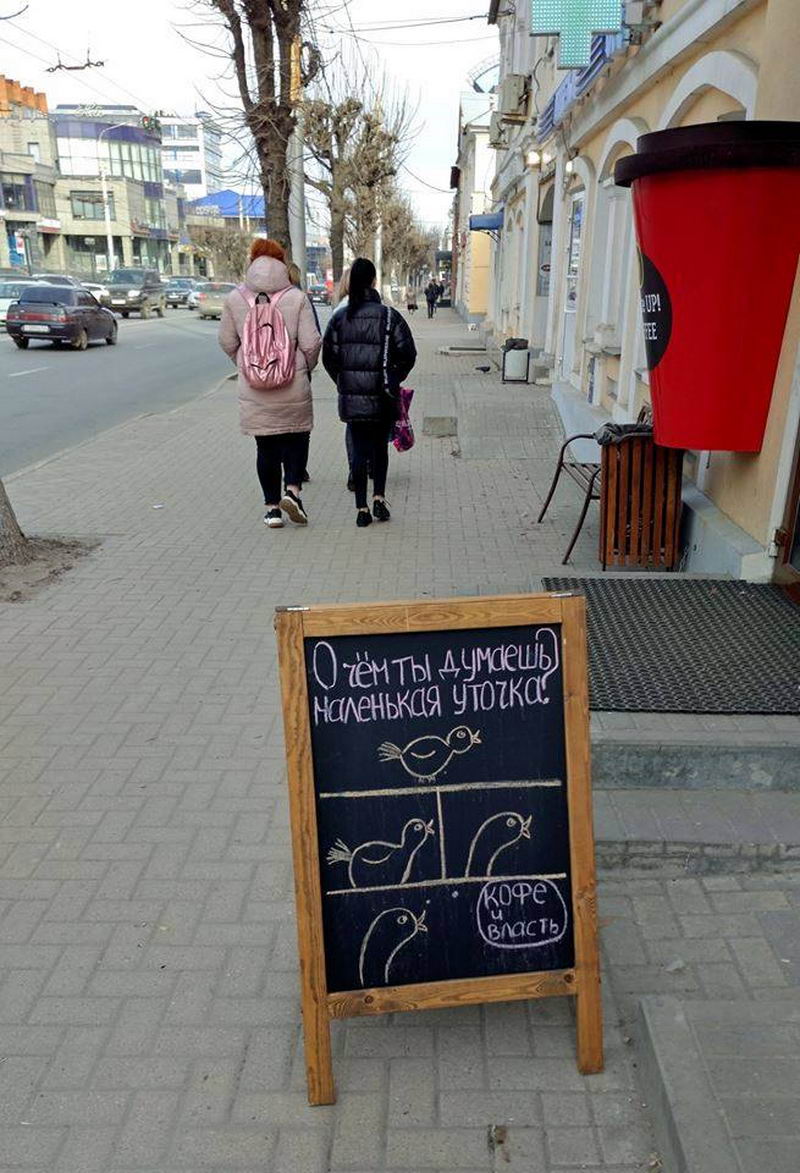 UP!
FEE
О чём ты думаешь,
маленькая уточка?
кофе
и
власть